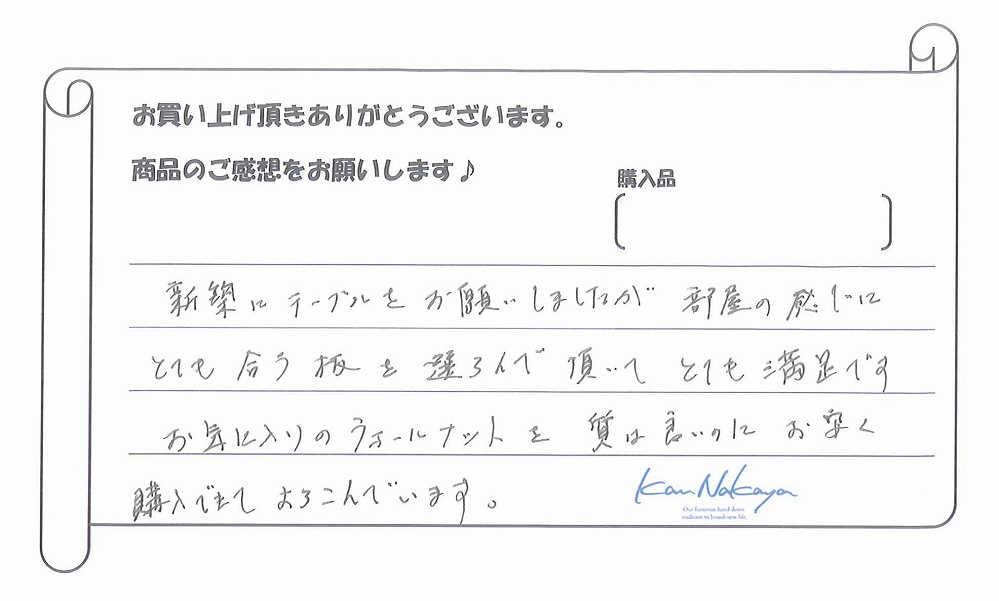 お買い上げ頂きありがとうございます。
商品のご感想をお願いします♪
購入品
新築に テーブルを お願いしましたが 部屋の感じに
とても 合う 板を 選らんで 頂いて とても 満足です
お気に入りの ウォールナットを 質は良いのに お安く
購入できて よろこんでいます。
Kan Nakaya
Our furniture hand down
tradition to brand-new life.